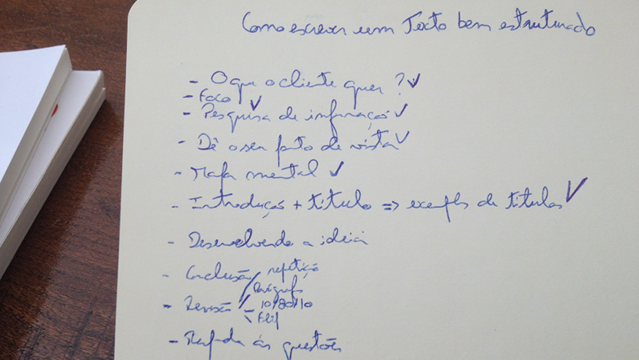 Como escrever um Texto bem estruturado
- O que o cliente quer? ✓
- Foco ✓
- Pesquisa de informação ✓
- Dê o seu ponto de vista ✓
- Mapa mental ✓
- Introdução + título => exemplos de títulos ✓
- Desenvolvendo a ideia
- Conclusão repetição
- Revisão 10/80/10
- Responda às questões